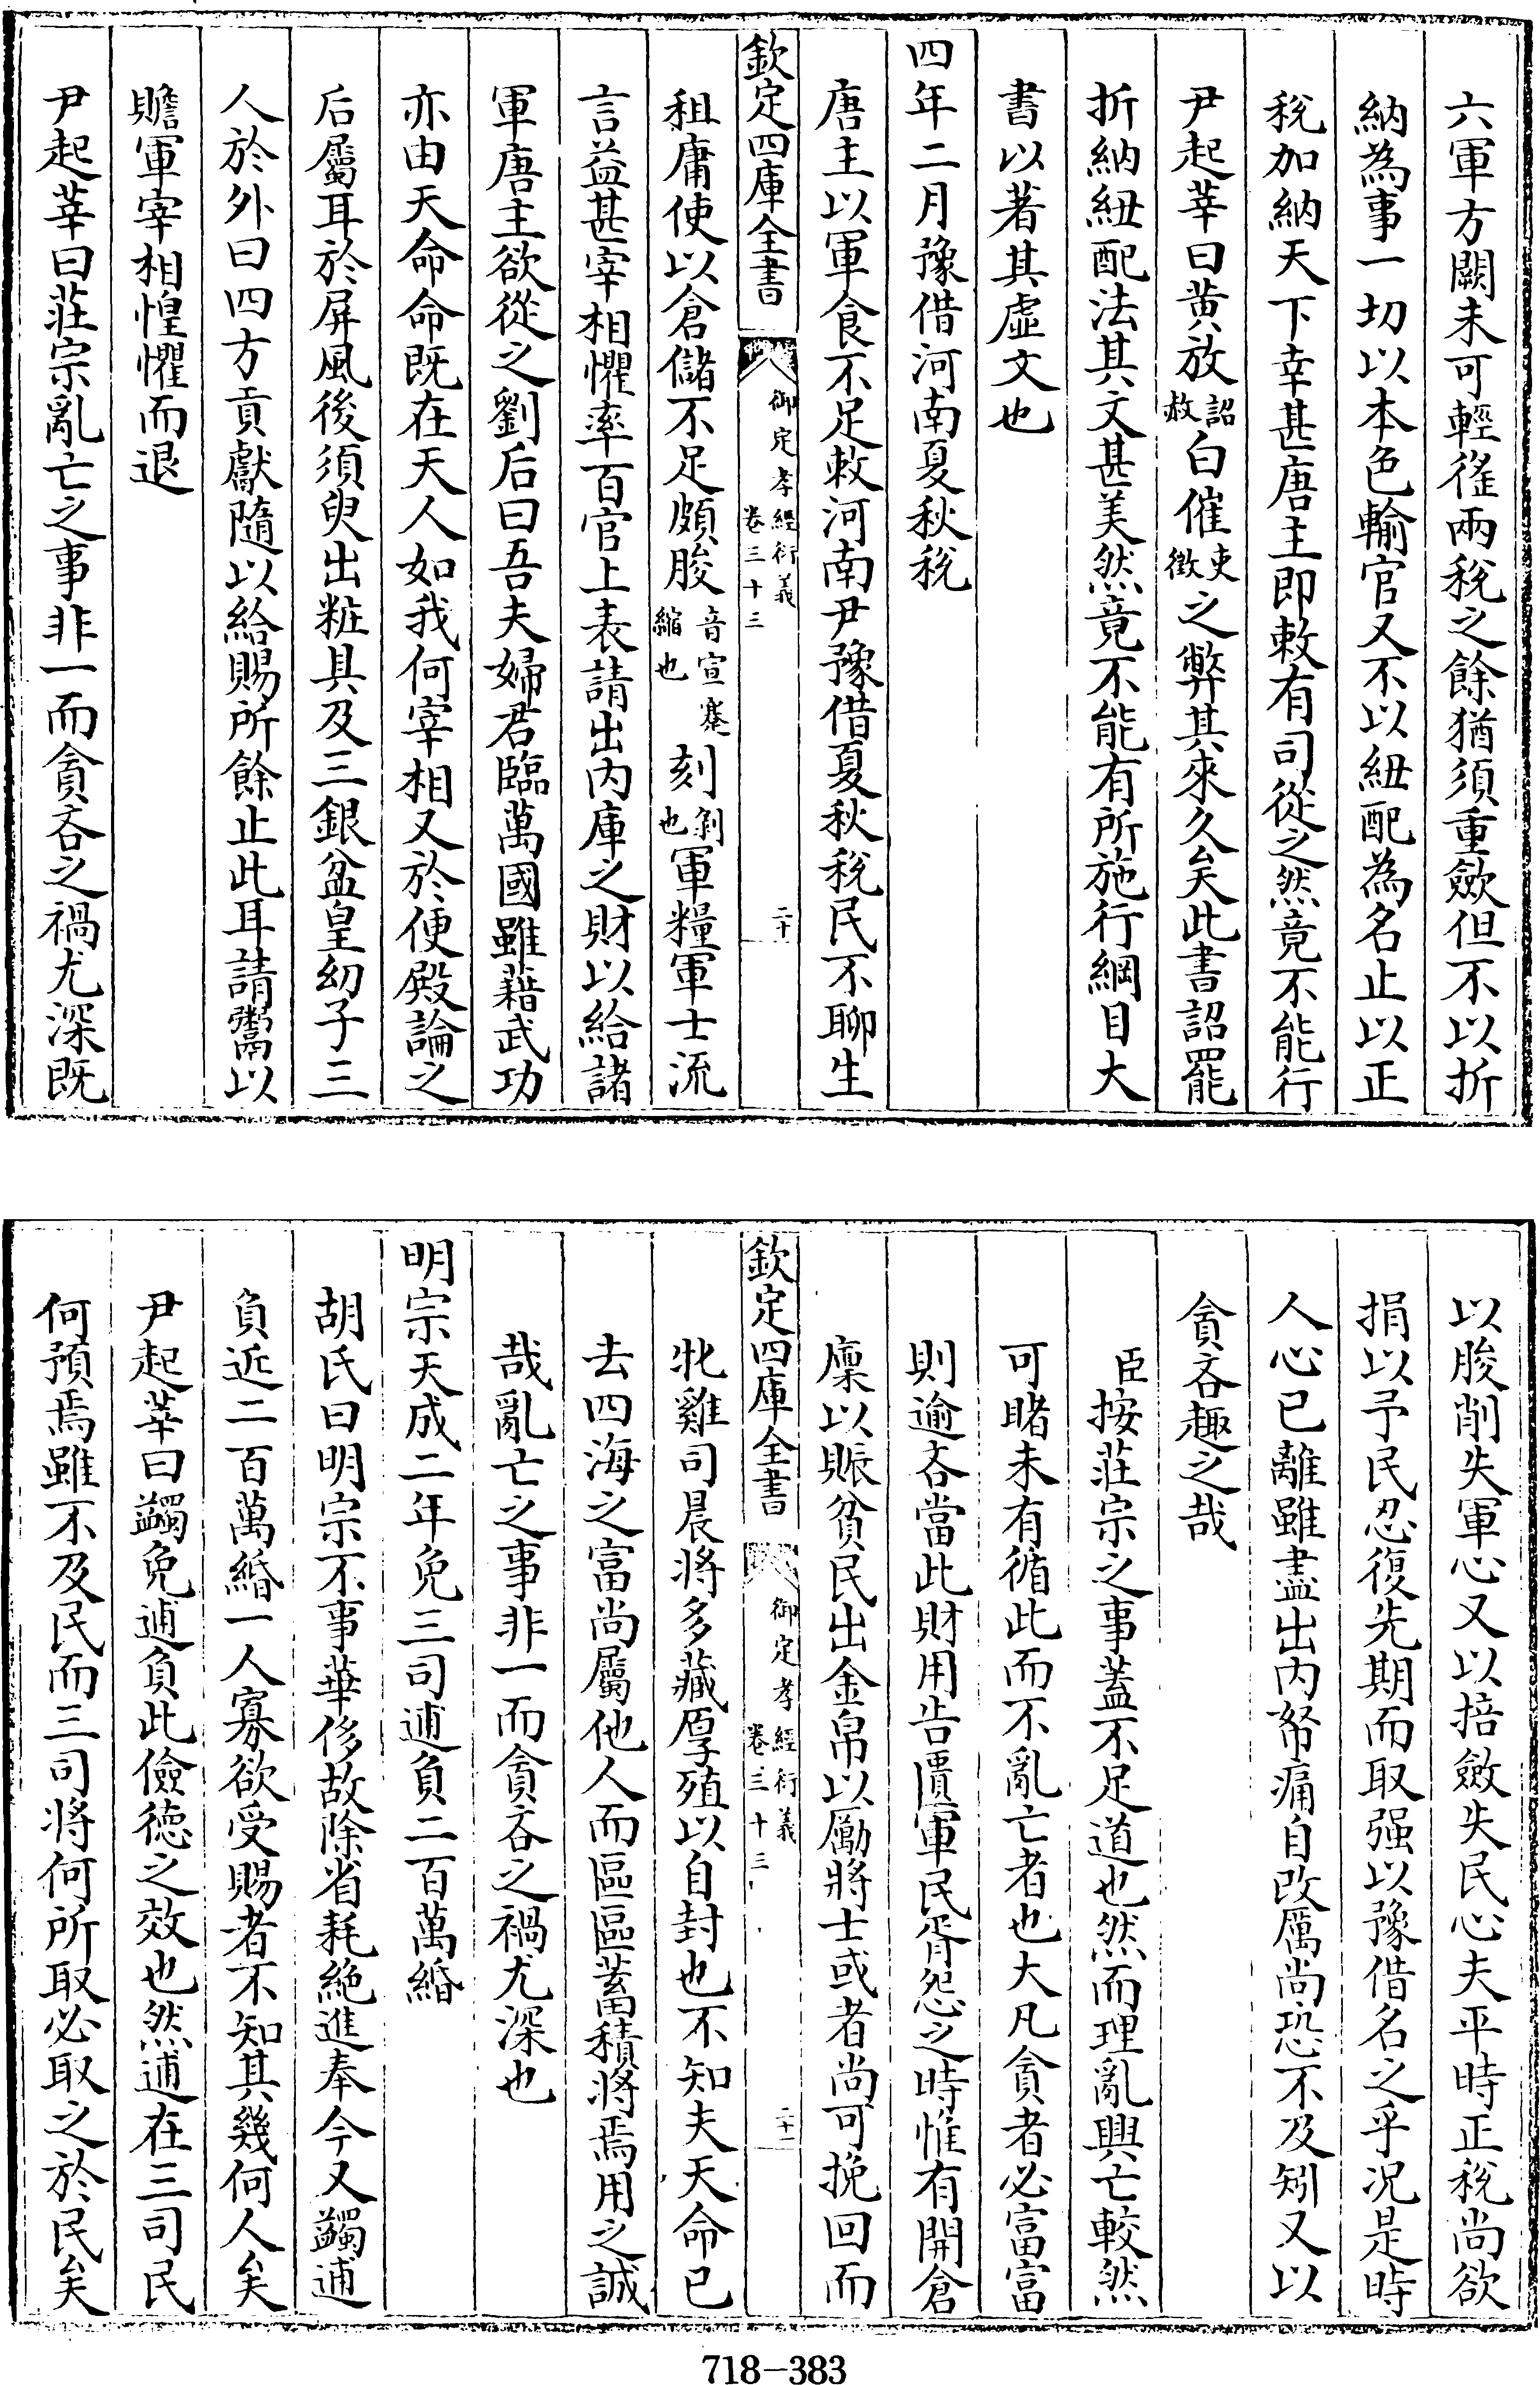 六軍方闕未可輕徭兩稅之餘猶須重歛但不以折
納為事一切以本色輸官又不以紐配為名止以正
稅加納天下幸甚唐主即敕有司從之然竟不能行
尹起莘曰黄放詔赦白催吏徵之弊其來久矣此書詔罷
折納紐配法其文甚美然竟不能有所施行綱目大
書以著其虛文也
四年二月豫借河南夏秋稅
唐主以軍食不足敕河南尹豫借夏秋稅民不聊生
欽定四庫全書 御定孝經衍義 卷三十三 二十
租庸使以倉儲不足頗朘音宣蹇縮也刻剝也軍糧軍士流
言益甚宰相懼率百官上表請出内庫之財以給諸
軍唐主欲從之劉后曰吾夫婦君臨萬國雖藉武功
亦由天命命既在天人如我何宰相又於便殿論之
后屬耳於屏風後須臾出粧具及三銀盆皇幼子三
人於外曰四方貢獻隨以給賜所餘止此耳請鬻以
贍軍宰相惶懼而退
尹起莘曰莊宗亂亡之事非一而貪吝之禍尤深既
以朘削失軍心又以掊斂失民心夫平時正稅尚欲
捐以予民忍復先期而取强以豫借名之乎况是時
人心已離雖盡出内帑痛自改厲尚恐不及矧又以
貪吝趣之哉
臣按莊宗之事蓋不足道也然而理亂興亡較然
可睹未有循此而不亂亡者也大凡貪者必富富
則逾吝當此財用告匱軍民胥怨之時惟有開倉
廩以賑貧民出金帛以勵將士或者尚可挽回而
欽定四庫全書 御定孝經衍義 卷三十三 二十一
牝雞司晨將多藏厚殖以自封也不知夫天命已
去四海之富尚屬他人而區區蓄積將焉用之誠
哉亂亡之事非一而貪吝之禍尤深也
明宗天成二年免三司逋負二百萬緡
胡氏曰明宗不事華侈故除省耗絶進奉今又蠲逋
負近二百萬緡一人寡欲受賜者不知其幾何人矣
尹起莘曰蠲免逋負此儉德之效也然逋在三司民
何預焉雖不及民而三司將何所取必取之於民矣
718-383